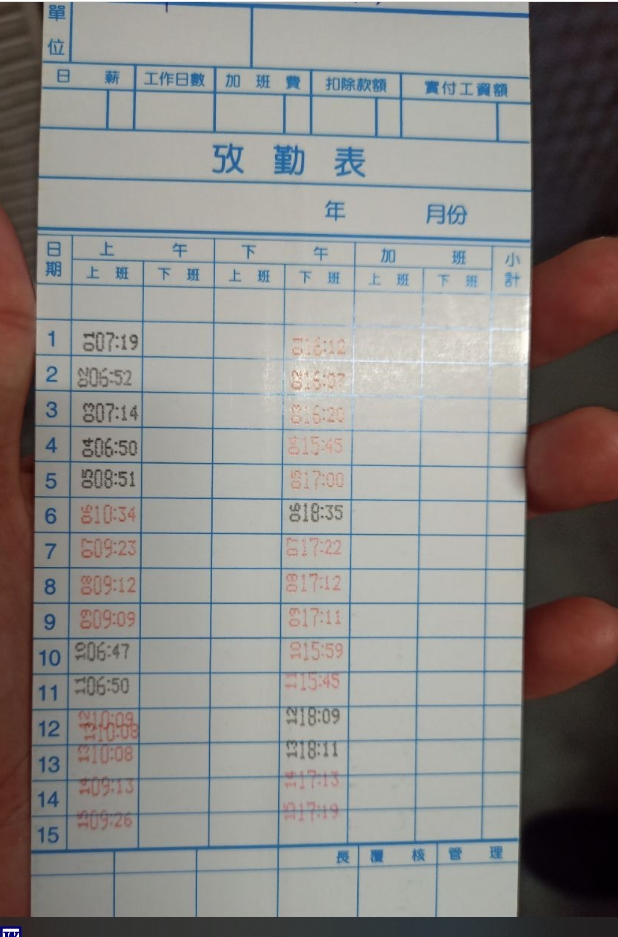 單位
日 薪 工作日數 加 班 費 扣除款額 實付工資額
攷 勤 表
年 月份
日期 上 午 下 午 加 班 小計
上 班 下 班 上 班 下 班 上 班 下 班
1 01 07:19 01 16:12
2 02 06:52 02 16:07
3 03 07:14 03 16:20
4 04 06:50 04 15:45
5 05 08:51 05 17:00
6 06 10:34 06 18:35
7 07 09:23 07 17:22
8 08 09:12 08 17:12
9 09 09:09 09 17:11
10 10 06:47 10 15:59
11 11 06:50 11 15:45
12 12 10:09 12 18:09
13 10:08
13 13 10:08 13 18:11
14 14 09:13 14 17:13
15 15 09:26 15 17:19
長 覆 核 管 理